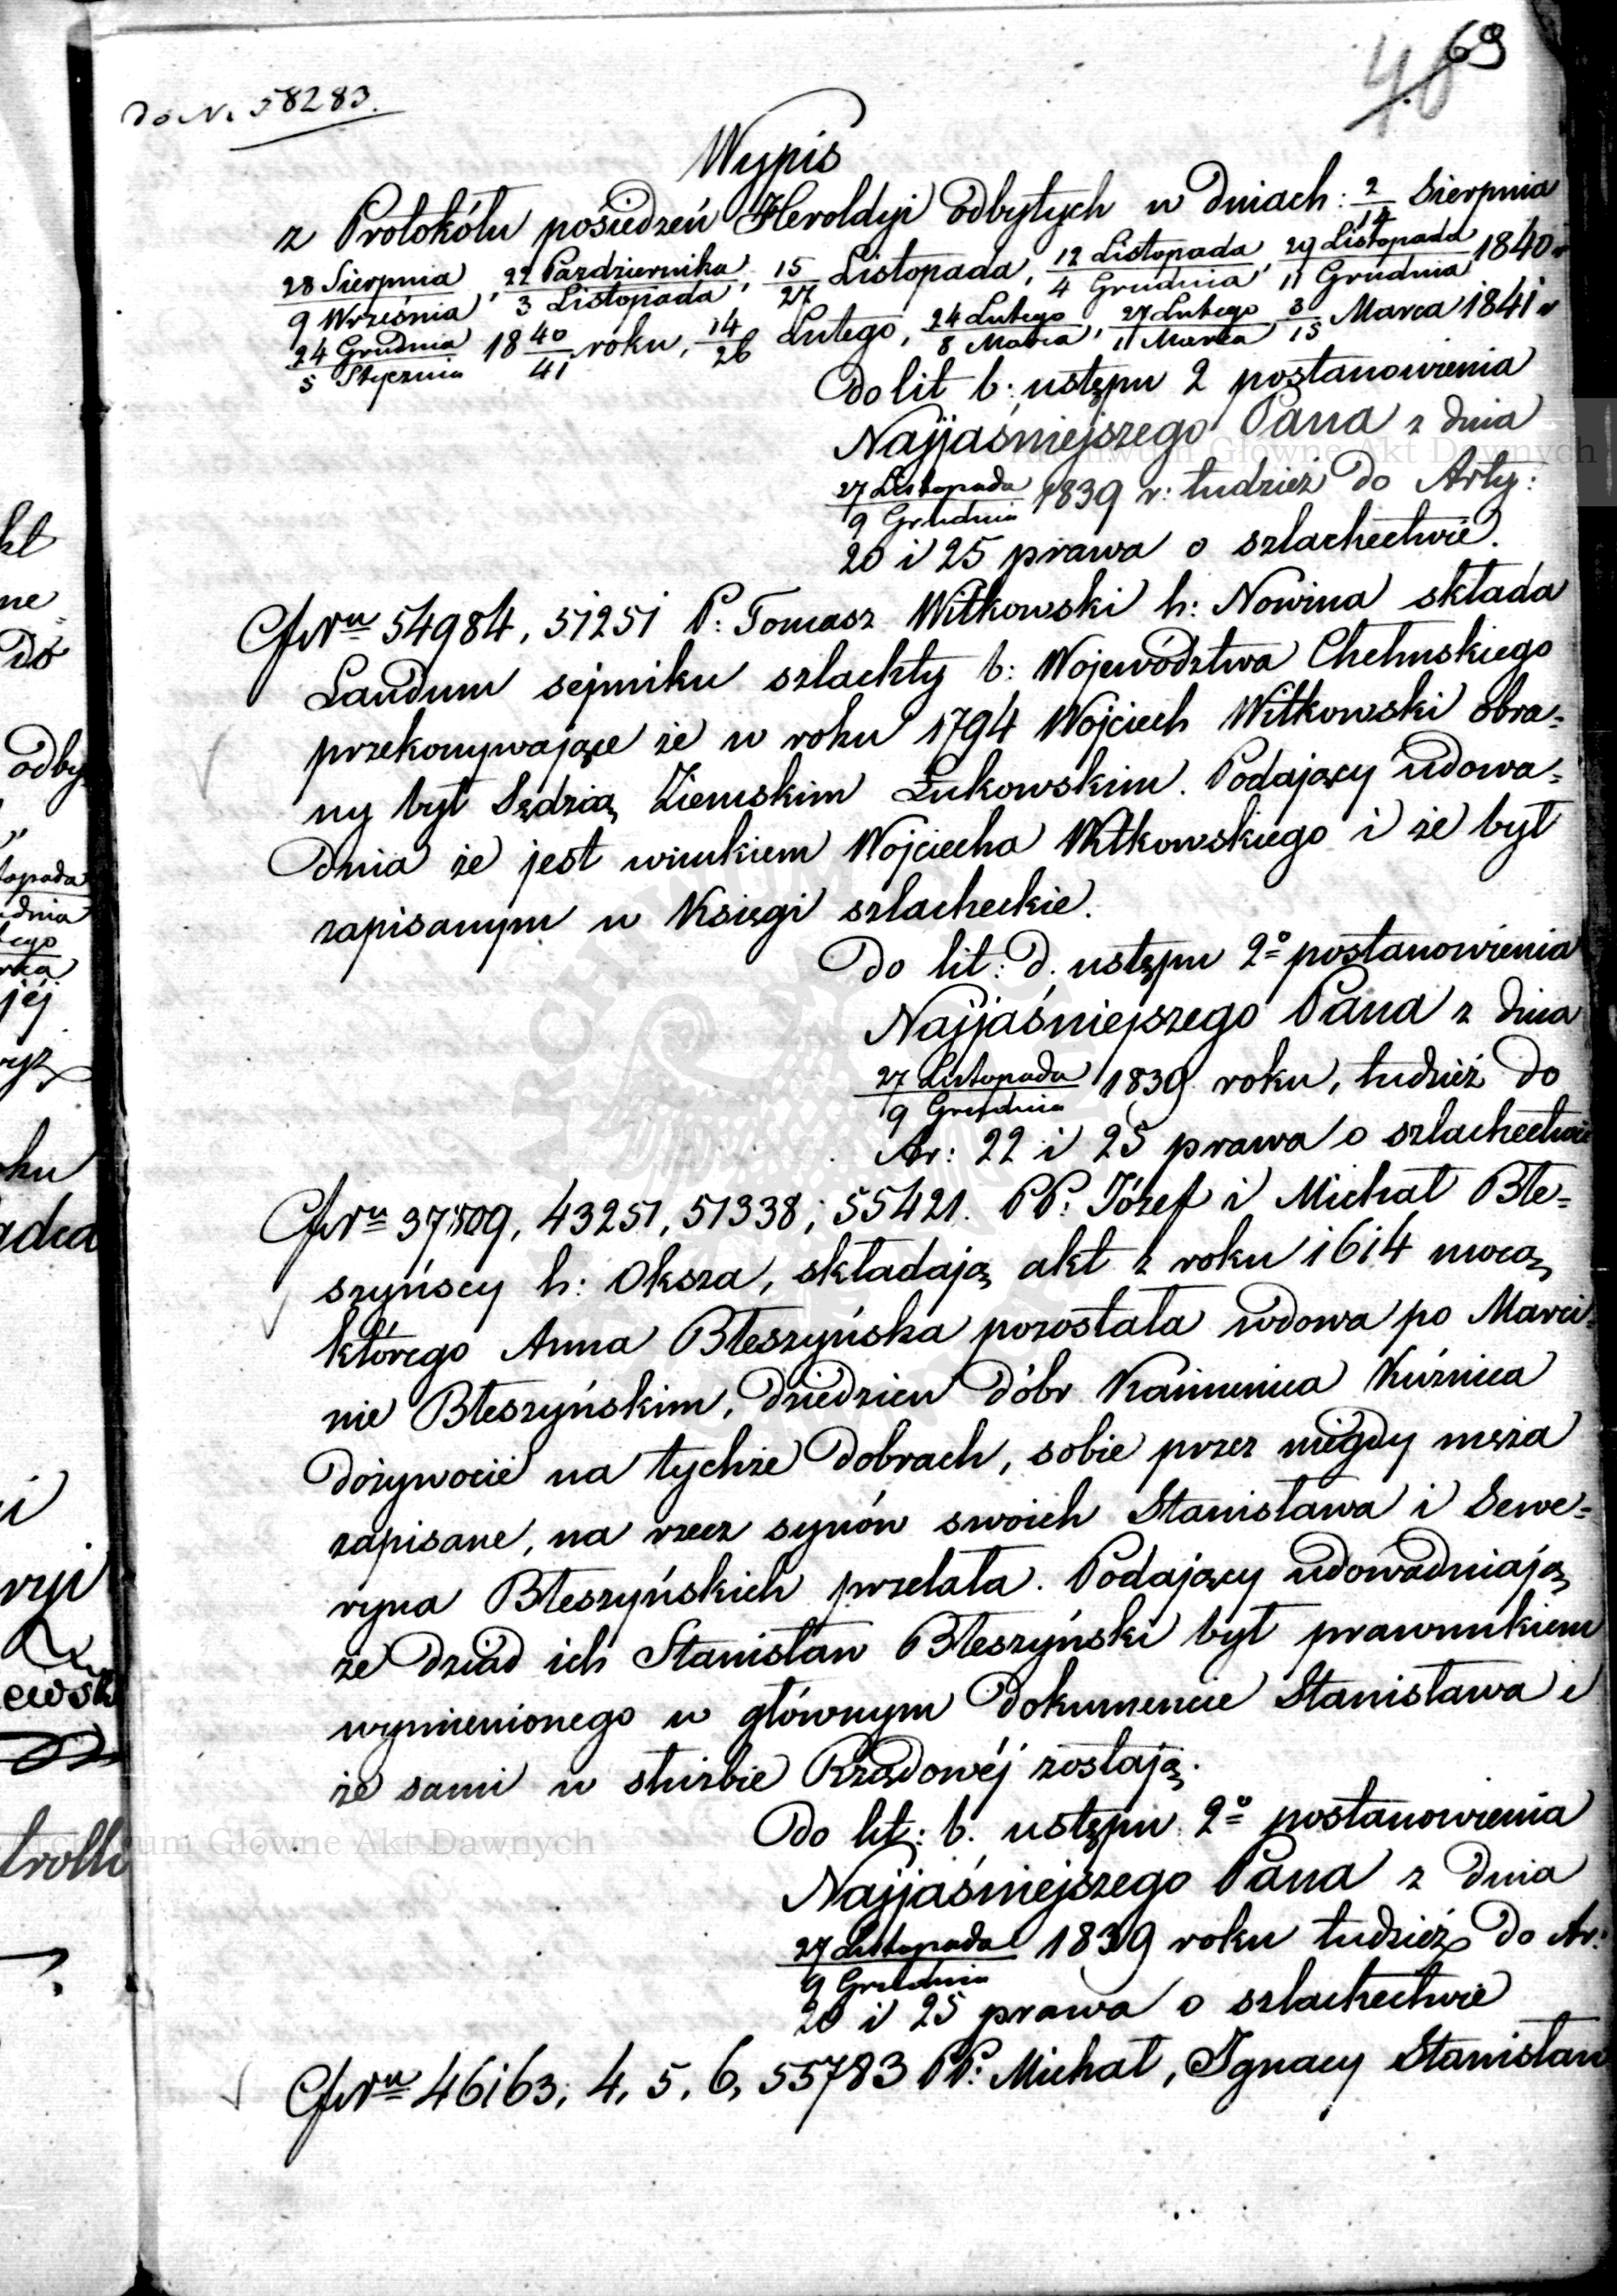 69
46
do N. 58283.
Wypis
z Protokółu posiedzeń Heroldyi odbytych w dniach: 2/14 Sierpnia
28 Sierpnia/9 Września, 22 Października/3 Listopada, 15/27 Listopada, 12 Listopada/4 Grudnia, 29 Listopada/11 Grudnia 1840 r
24 Grudnia/5 Stycznia 18 40/41 roku, 14/26 Lutego, 24 Lutego/8 Marca, 27 Lutego/11 Marca, 3/15 Marca 1841 r
do lit b: ustępu 2 postanowienia
Najjaśniejszego Pana z dnia
27 Listopada/9 Grudnia 1839 r: tudzież do Arty:
20 i 25 prawa o szlachectwie.
Nru 54984, 51251 P: Tomasz Witkowski h: Nowina składa
Laudum sejmiku szlachty b: Województwa Chełmskiego
przekonywające że w roku 1794 Wojciech Witkowski obra=
ny był Sędzią Ziemskim Łukowskim. Podający udowa=
dnia że jest wnukiem Wojciecha Witkowskiego i że był
zapisanym w Księgi szlacheckie.
do lit: d. ustępu 2º postanowienia
Najjaśniejszego Pana z dnia
27 Listopada/9 Grudnia 1839 roku, tudzież do
Ar: 22 i 25 prawa o szlachectwie
Nru 37709, 43251, 51338, 55421. PP: Józef i Michał Błe=
szyńscy h: Oksza, składają akt z roku 1614 mocą
którego Anna Błeszyńska pozostała wdowa po Marci=
nie Błeszyńskim, dziedzicu dóbr Kamienica Kuźnica
dożywocie na tychże dobrach, sobie przez niegdy męża
zapisane, na rzecz synów swoich Stanisława i Sewe=
ryna Błeszyńskich przelała. Podający udowadniają
że dziad ich Stanisław Błeszyński był prawnukiem
wymienionego w głównym dokumencie Stanisława i
że sami w służbie Rządowéj zostają.
do lit: b. ustępu 2º postanowienia
Najjaśniejszego Pana z dnia
27 Listopada/9 Grudnia 1839 roku tudzież do Ar:
20 i 25 prawa o szlachectwie
Nru 46163, 4, 5, 6, 55783 PP: Michał, Ignacy Stanisław
Archiwum Główne Akt Dawnych
Archiwum Główne Akt Dawnych